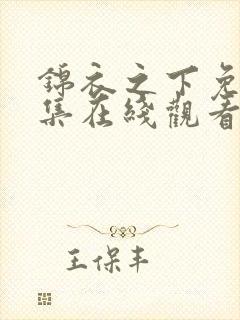 錦衣之下免
集在綫觀看
王保丰